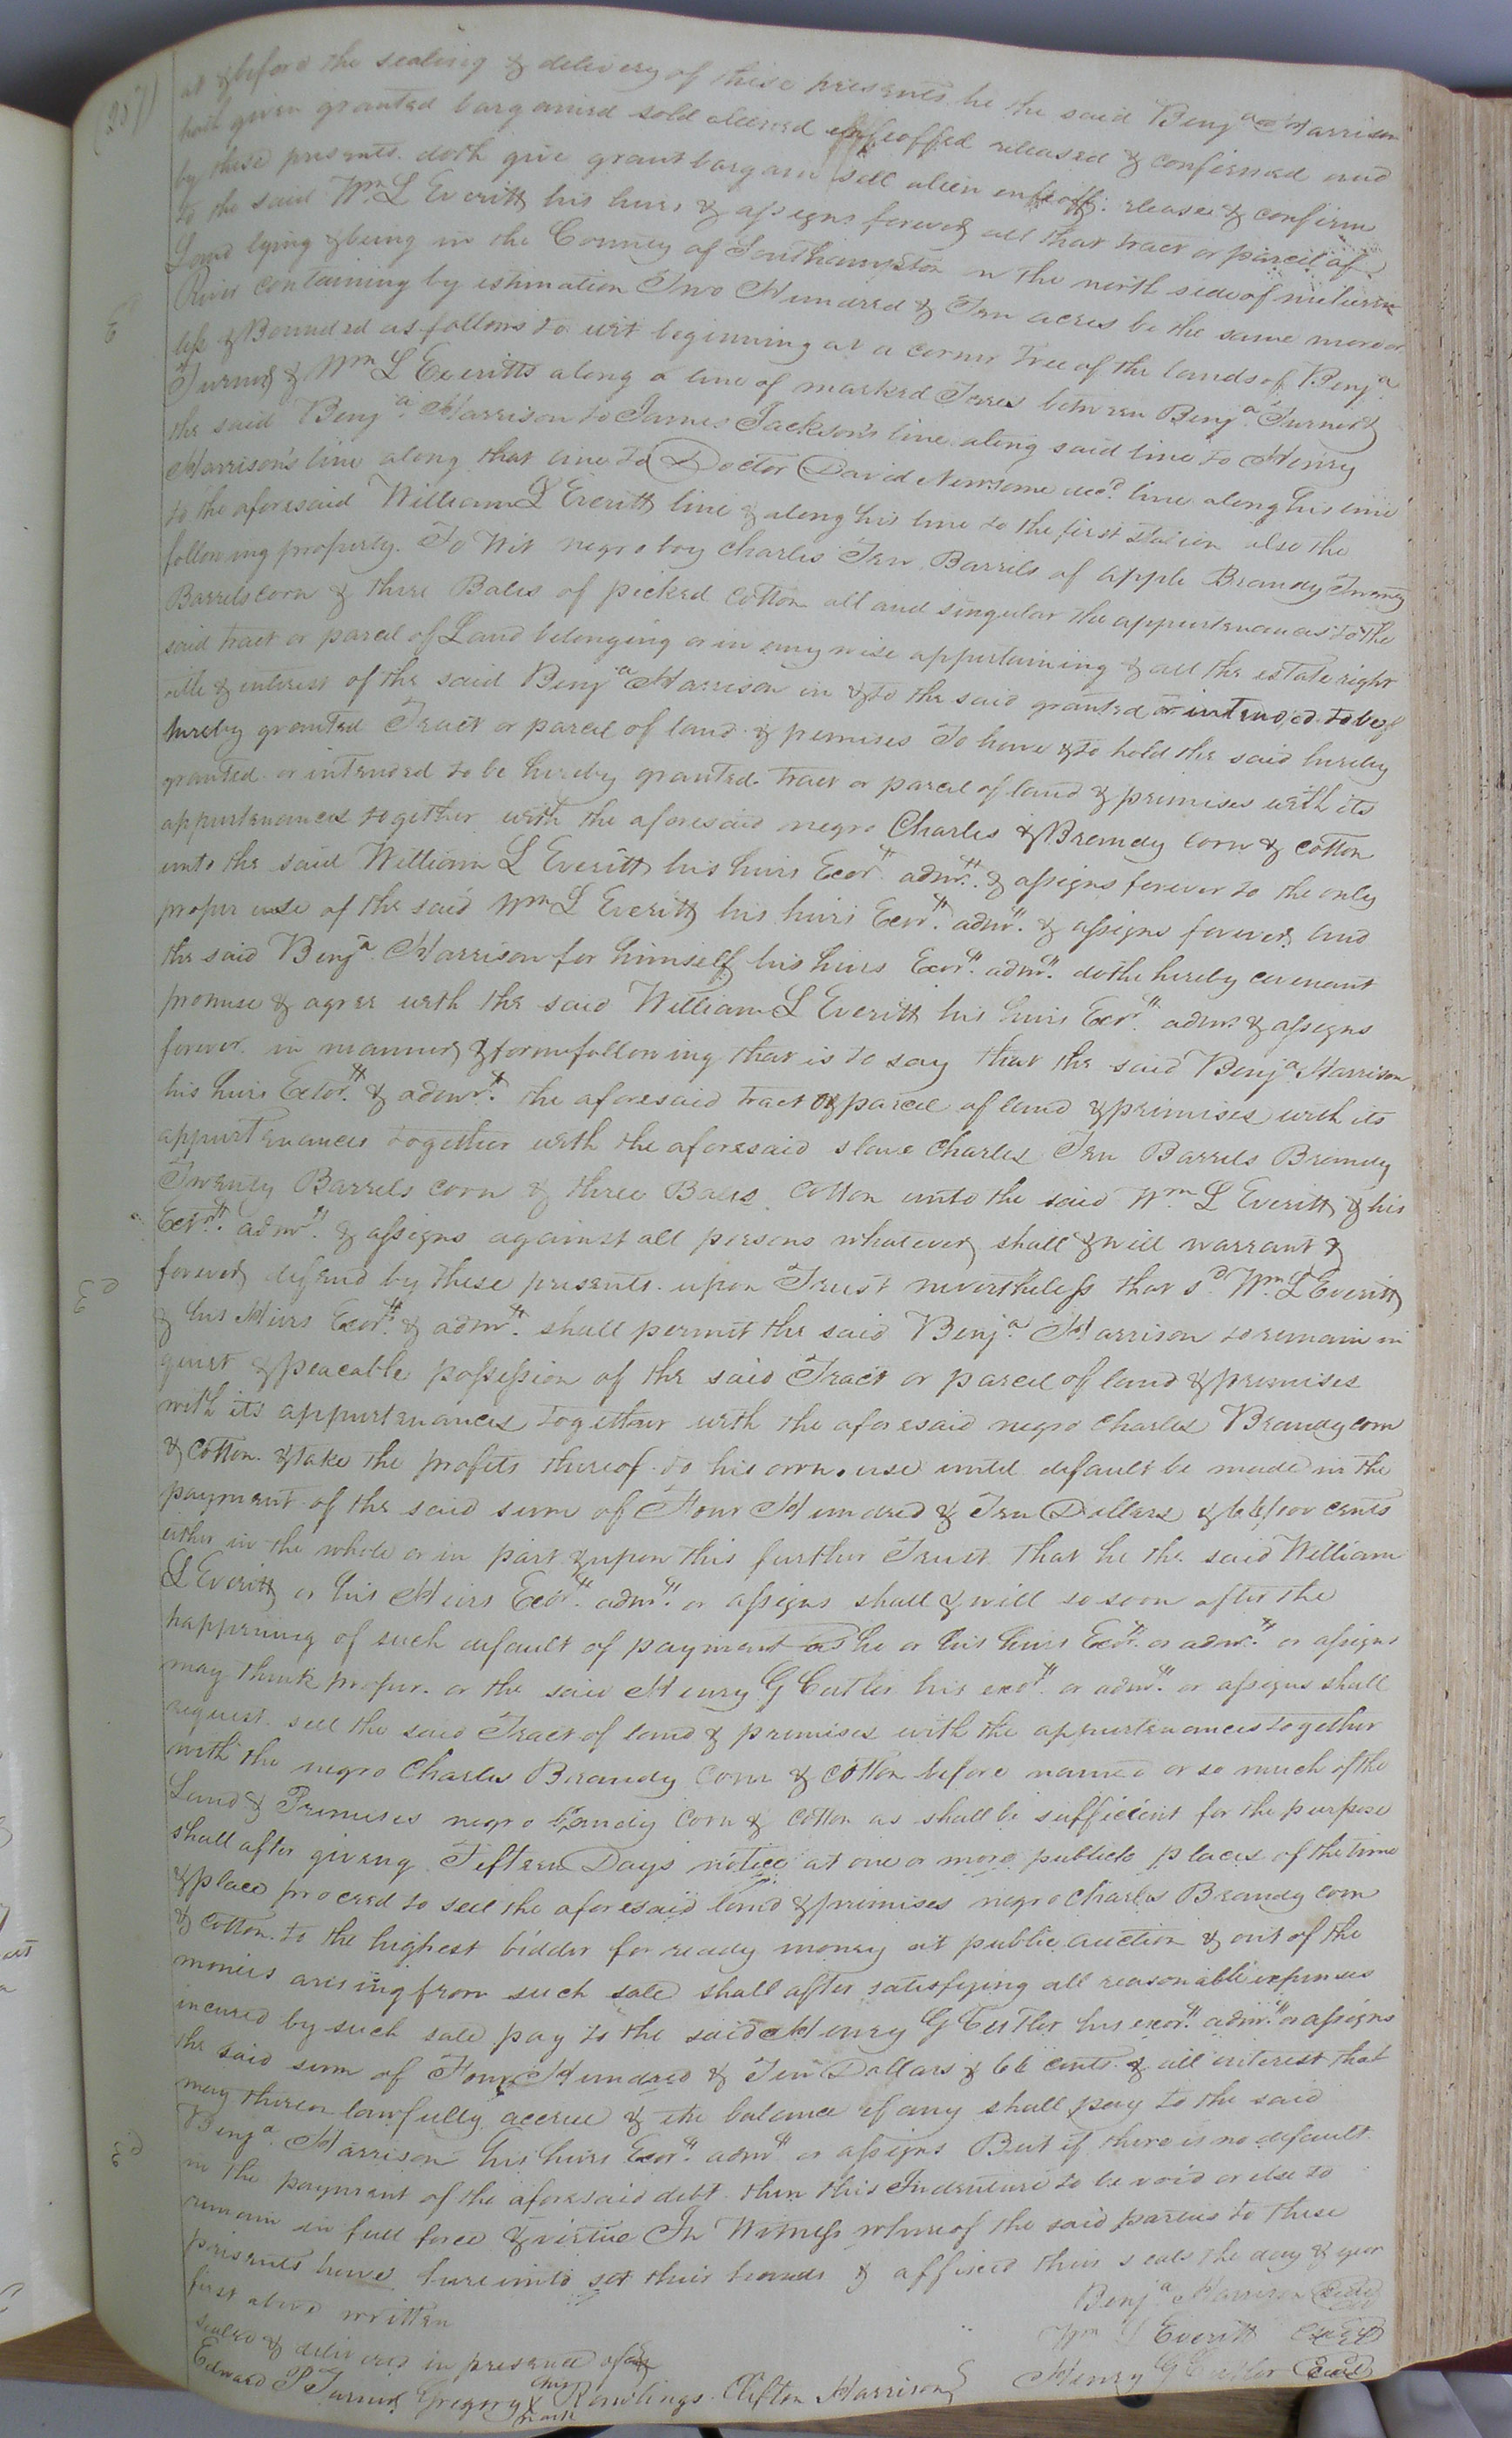 (257)
at & before the sealing & delivery of these presents he the said Benja Harrison
hath given granted bargained sold aliened enfeoffed released & confirmed and
by these presents doth give grant bargain sell alien enfeoff release & confirm
to the said Wm L Everitt his heirs & assigns forever all that tract or parcel of
Land lying & being in the County of Southampton on the north side of
River containing by estimation Two Hundred & Ten acres be the same more or
less & Bounded as follows to wit beginning at a corner Tree of the lands of Benja
Turner & Wm L Everitts along a line of marked Trees between Benja Turner &
the said Benja Harrison to James Jackson's line along said line to Henry
Harrison's line along that line to Doctor David Newsome decd line along his line
to the aforesaid William L Everitt line & along his line to the first Station also the
following property. To Wit negro boy Charles Ten Barrils of apple Brandy Twenty
Barrels corn & three Bales of picked cotton all and singular the appurtenances to the
said tract or parcel of Land belonging or in any wise appertaining & all the estate right
title & interest of the said Benja Harrison in & to the said granted or intended to be
hereby granted Tract or parcel of land & premises To have & to hold the said hereby
granted or intended to be hereby granted tract or parcel of land & premises with its
appurtenances together with the aforesaid negro Charles & Brandy corn & cotton
unto the said William L Everitt his heirs Exors. admrs. & assigns forever to the only
proper use of the said Wm L Everitt his heirs Exors. admrs. & assigns forever and
the said Benja Harrison for himself his heirs Exors. admrs. dothe hereby covenant
promise & agree with the said William L Everitt his heirs Exrs. admrs & assigns
forever in manner & forme following that is to say that the said Benja Harrison
his heirs Extors. & admrs. the aforesaid tract or parcel of land & premises with its
appurtenances together with the aforesaid slave Charles Ten Barrels Brandy
Twenty Barrels corn & three Bales cotton unto the said Wm L Everitt & his
Extrs. admrs. & assigns against all persons whatever shall & will warrant &
forever defend by these presents upon Trust nevertheless that sd Wm L Everitt
& his Heirs Exors. & admrs. shall permit the said Benja Harrison to remain in
quiet & peacable possession of the said Tract or parcel of land & premises
with its appurtenances together with the aforesaid negro Charles Brandy corn
& cotton & take the profits thereof to his own use until default be made in the
payment of the said sum of Four Hundred & Ten Dollars & 66/100 cents
either in the whole or in part & upon this further Trust that he the said William
L Everitt or his Heirs Exors. admrs. or assigns shall & will so soon after the
happening of such default of payment as he or his heirs Exors. or admrs. or assigns
may think proper or the said Henry G Cutler his exors. or admrs. or assigns shall
request sell the said Tract of land & premises with the appurtenances together
with the negro Charles Brandy Corn & cotton before named or so much of the
Land & Premises negro Brandy Corn & cotton as shall be sufficient for the purpose
shall after giveng Fifteen Days notice at one or more publick places of the time
& place proceed to sell the aforesaid land & premises negro Charles Brandy corn
& cotton to the highest bidder for ready money at public auction & out of the
monies arising from such sale shall after satisfying all reasonable expenses
incured by such sale pay to the said Henry G Cutler his exors. admrs. or assigns
the said sum of Four Hundred & Ten Dollars & 66 cents & all interest that
may thereon lawfully accrue & the balance if any shall pay to the said
Benja Harrison his heirs Exors. admrs or assigns But if there is no default
in the payment of the aforesaid debt then this Indenture to be void or else to
remain in full force & virtue In Witness whereof the said parties to these
presents have hereunto set their hands & affixed their seals the day & year
first above written
Benja Harrison Seal
Sealed & delivered in presence of
Wm L Everitt Seal
Edward P Turner Gregory his X mark Rawlings Clifton Harrison
Henry G Cutler Seal